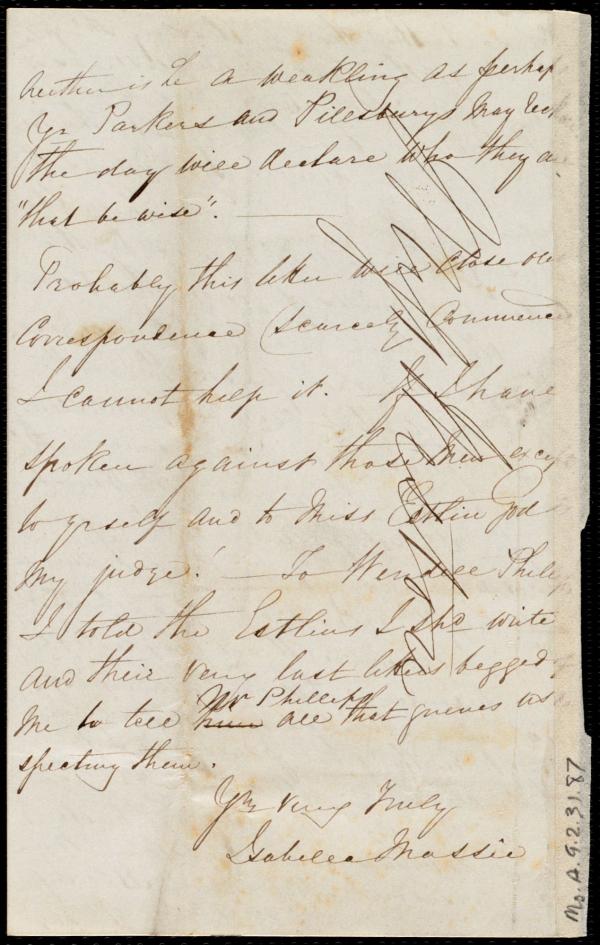 neither is he a weakling as perhap
Yr Parkers and Pillsburys may
the day will declare who they a
"that be wise". —
Probably this letter will close our
correspondence (scarcely commence
I cannot help it. If I have
spoken against those men exc
to yrself and to Miss Estlin God
my judge! — To Wendell Philip
I told the Estlins I shd write
and their very last letters begged
me to tell him Mr Phillips all that grieves us
specting them.
Yrs very truly
Isabella Massie
Ms.A.9.2.31.87